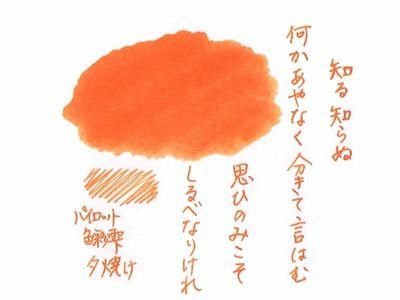 知る知らぬ
何かあやなく分きて言はむ
思ひのみこそ
しるべなりけれ
パイロット
色彩雫
夕焼け